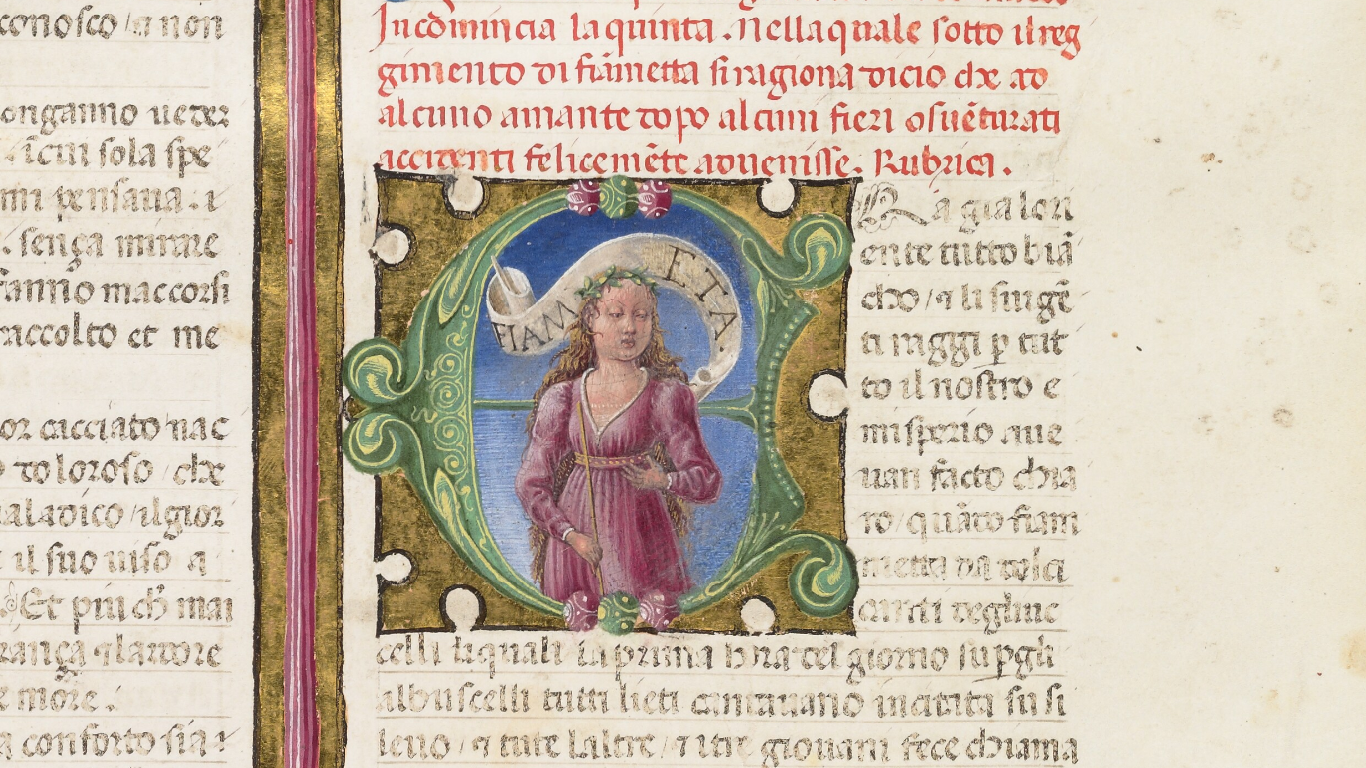 conosco / ⁊ non
onganno ueder
. ĩcui sola spe
mi pensaua . i
. sença mirare
fanno maccorsi
raccolto et me
or cacciato nac
doloroso / che
ilgior
il suo uiso a
Et piu ch̃ mai
rança ⁊ lardore
e more :
a conforto sia ⁊
Incõmincia laquinta . Nellaquale sotto ilreg
gimento di fiãmetta si ragiona dicio che ad
alcuno amante dopo alcuni fieri osuẽturati
accidenti felicemẽte aduenisse . Rubrica .
FIAMETA
Ra gia lori
ente tutto biã
cho / ⁊ li surgẽ
ti raggi p̱ tut
to il nostro e
misperio aue
uan facto chia
ro / quãdo fiam
metta da dolci
canti degliuc
celli liquali la prima hora del giorno su p̱ gli
albuscelli tutti lieti cantauano incitata su si
leuo / ⁊ tute laltre / ⁊ i tre giouani fece chiama